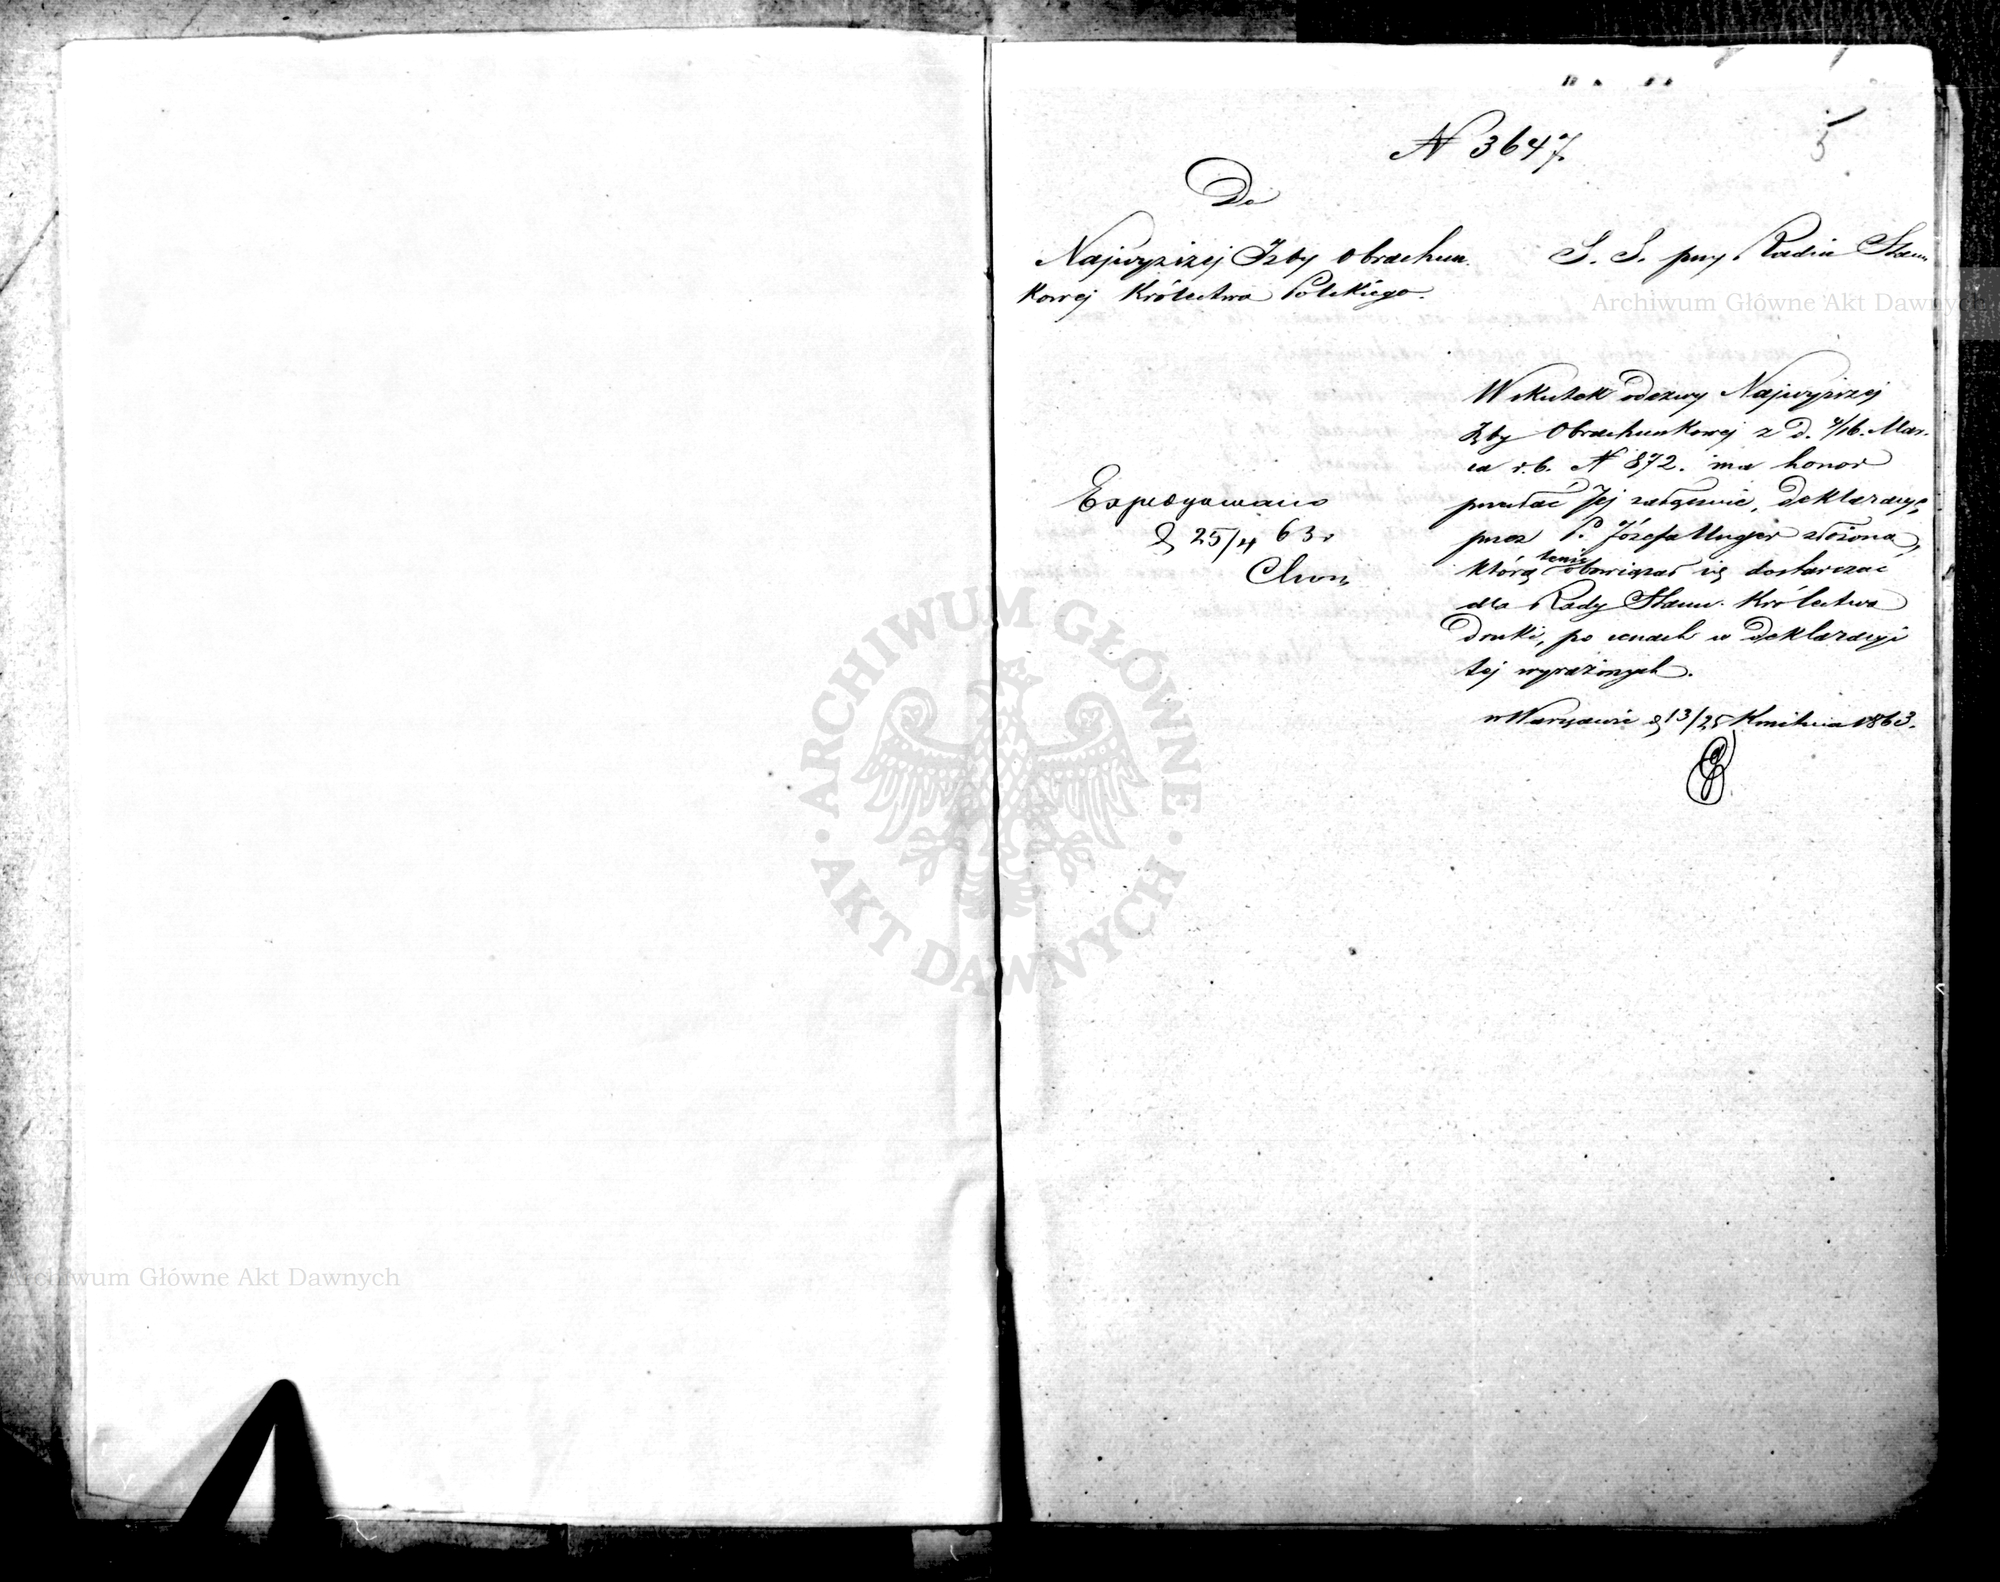 5
N 3647.
Do
Najwyższej Izby Obrachun.
kowej Królestwa Polskiego.
S. S. przy Radzie Stanu
Archiwum Główne Akt Dawnych
Wskutek odezwy Najwyższej
Izby Obrachunkowej z d. 4/16. Mar.
ca r.b. N 872. ma honor
przesłać Jej załącznie, deklaracyę
przez P. Józefa Unger złożoną,
którą tenże obowiązał się dostarczać
dla Rady Stanu. Królestwa
druki, po cenach w deklaracyi
tej wyrażonych.
w Warszawie d 13/25 Kwietnia 1863.
Expedyowano
d 25/4 63 r
ARCHIWUM GŁÓWNE
· AKT DAWNYCH ·
Archiwum Główne Akt Dawnych